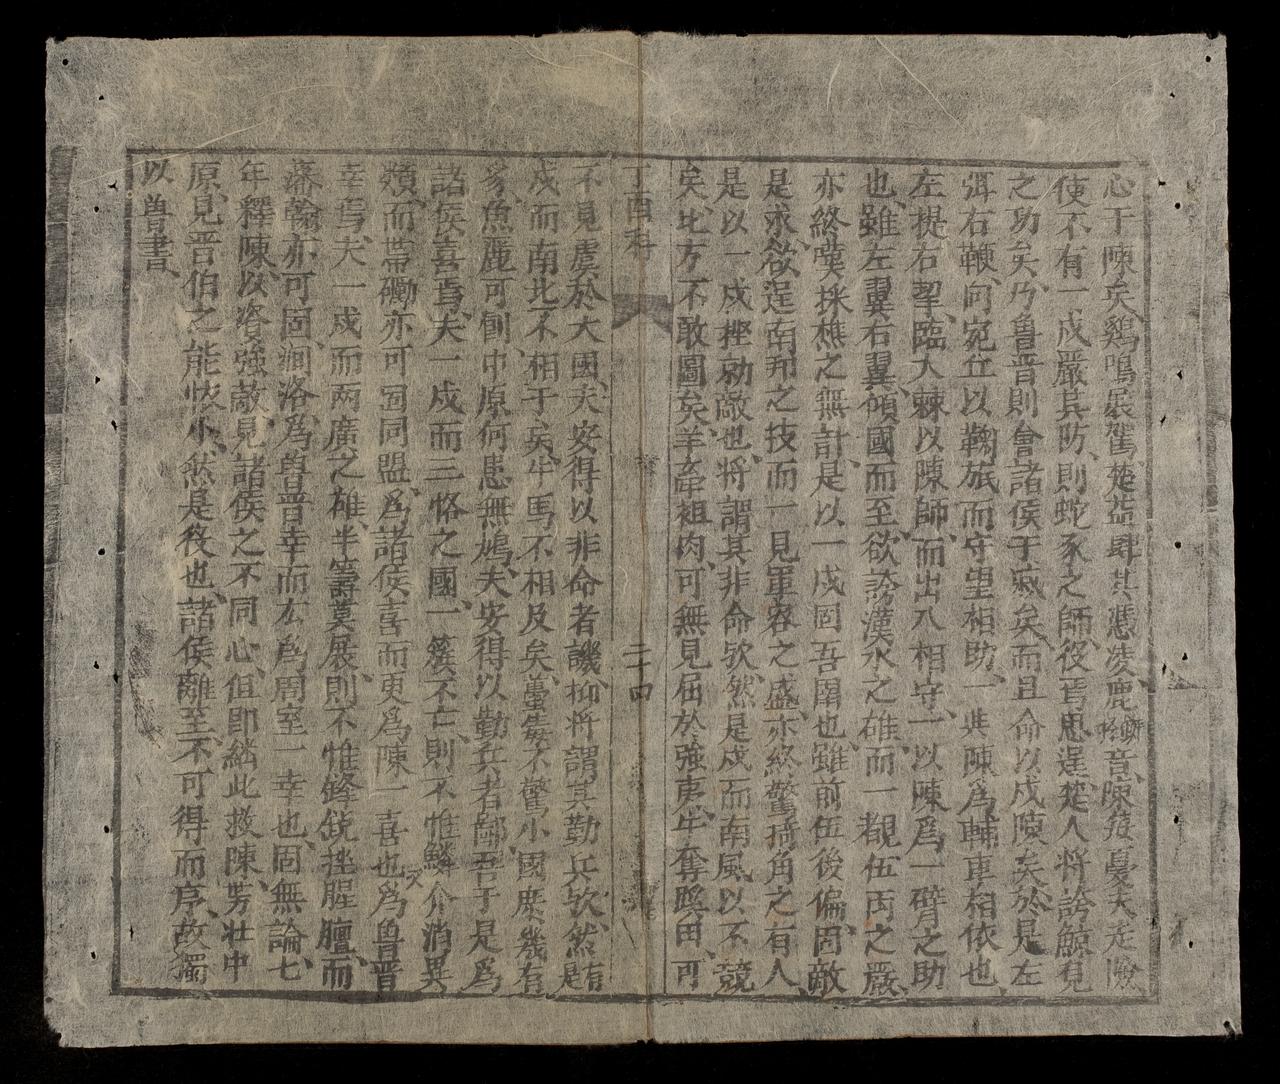 心于陳矣、鷄鳴展駕、楚益肆其憑凌、鹿音、陳疑憂夫走險
使不有一戍嚴其防、則蛇豕之師、役焉思逞、楚人將誇鯨見
之功矣、乃魯晋則會諸侯于戚矣、而且命以戍陳矣、於是左
弭右鞭、向宛丘以鞠旅、而守望相助、一與陳爲輔車相依也、
左提右挈、臨大棘以陳師、而出入相守、一以陳爲一臂之助
也、雖左翼右翼、傾國而至、欲誇漢水之雄、而一覩伍丙之嚴、
亦終嘆採樵之無計、是以一戍固吾圉也、雖前伍後偏、固敵
是求、欲逞南邦之技、而一見軍容之盛、亦終驚掎角之有人、
是以一戍挫勍敵也、將謂其非命欤、然是戍而南風以不競
矣、北方不敢圖矣、羊牽袒肉、可無見屈於強夷、牛奪蹊田、可
丁酉科
二十四
不見虞於大國、夫安得以非命者譏、抑将謂其勤兵欤、然有是
戍而南北不相于矣、牛馬不相及矣、蠆毒不驚、小國庶幾有
豸、魚麗可創、中原何患無鳩、夫安得以勤兵者鄙、吾于是爲
諸侯喜焉、夫一戍而三恪之國、一簇不亡、則不惟鱗介消異
類、而帶礪亦可固同盟、爲諸侯喜而更爲陳一喜也、爲魯晋
幸焉、夫一戍而兩廣之雄、半籌莫展、則不惟鋒鋭挫腥膻、而
藩翰亦可固澗洛、爲魯晋幸而亦爲周室一幸也、固無論七
年釋陳、以資強敵、見諸侯之不同心、但即繙此救陳、芳壯中
原、見晋伯之能恢小、然是役也、諸侯離至、不可得而序、故獨
以魯書、